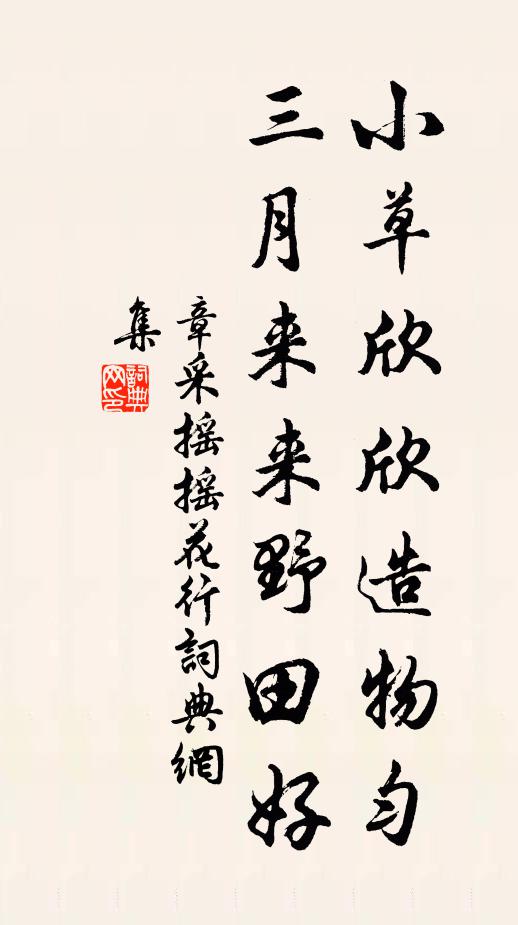 小草欣欣造物匀
三月来来野田好
章采摇摇花行詞典網
集
詞典网印